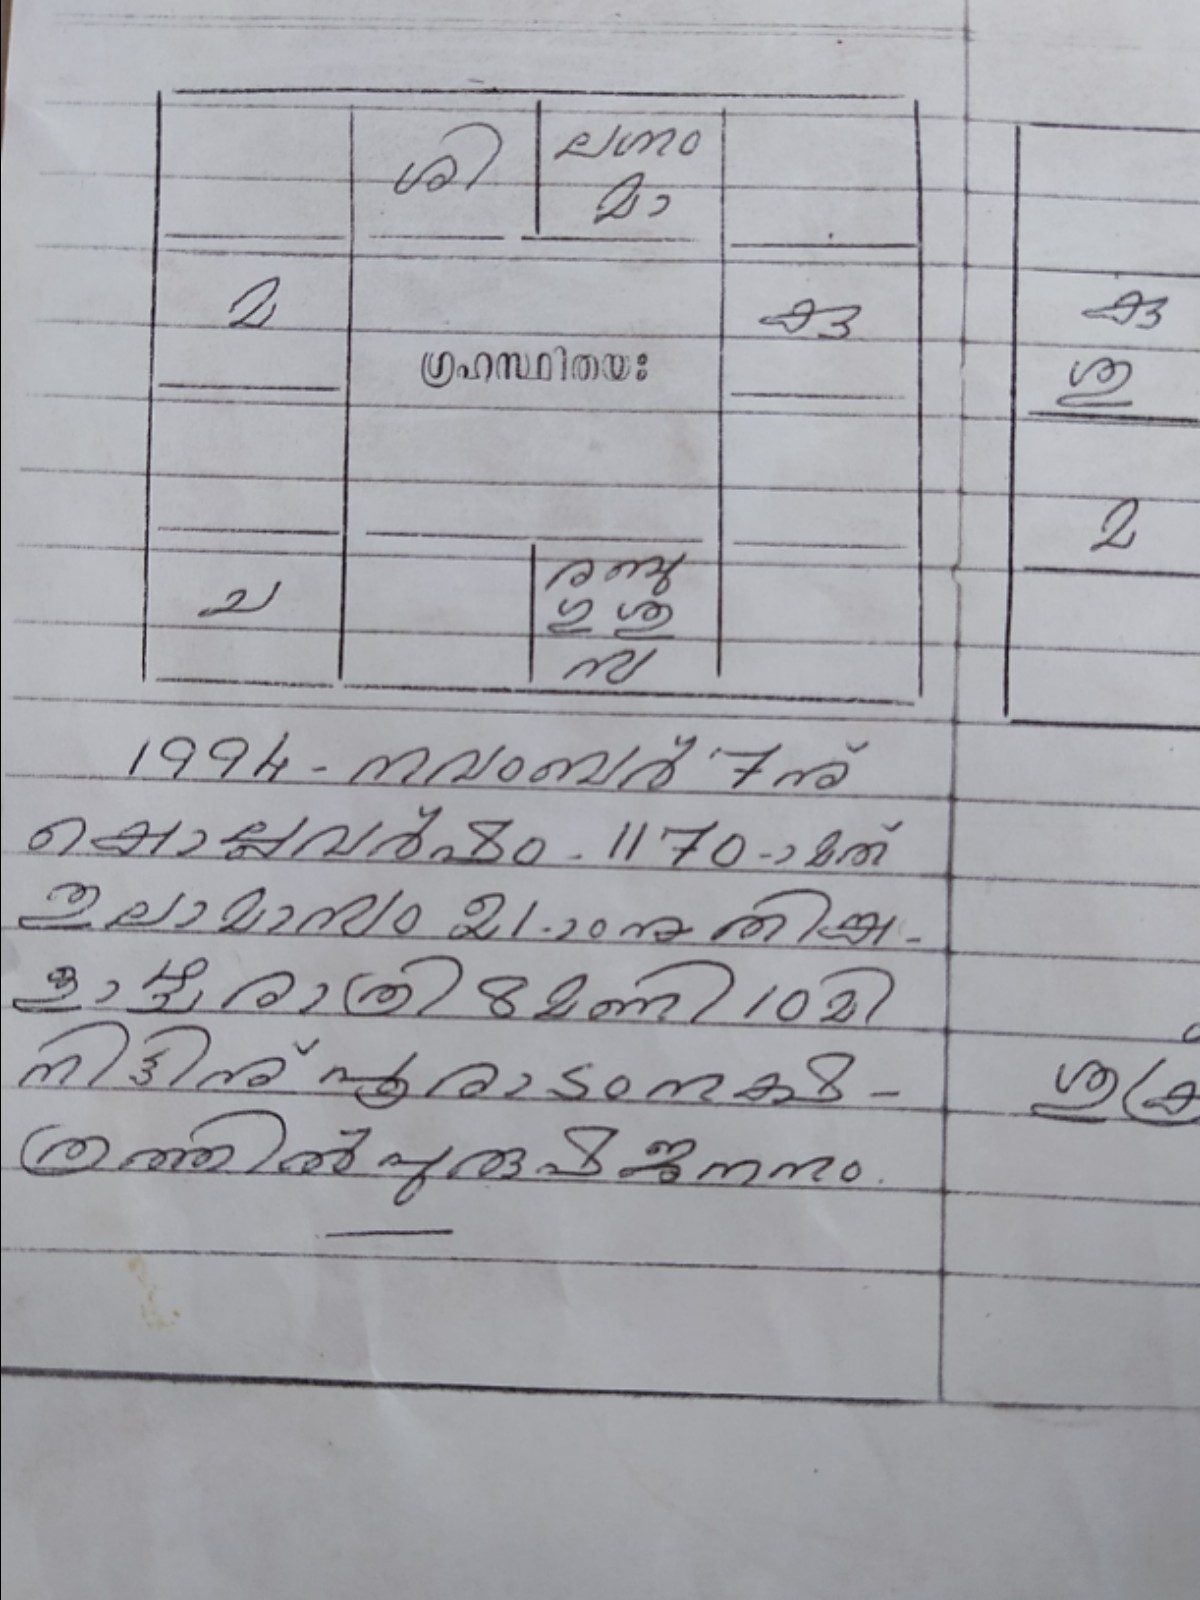 ശി
ലഗ്നം
മാ
മ
കു
ഗ്രഹസ്ഥിതയഃ
കു
ശു
മ
ച
ര ബു
ഗു ശു
സ
1994 - നവംബർ 7ന്
കൊല്ലവർഷം - 1170-ാമത്
തുലാമാസം 21-ാംനു തിങ്ക-
ളാഴ്ച രാത്രി 8 മണി 10 മി
നിട്ടിന് പൂരാടം നക്ഷ-
ത്രത്തിൽ പുരുഷജനനം.